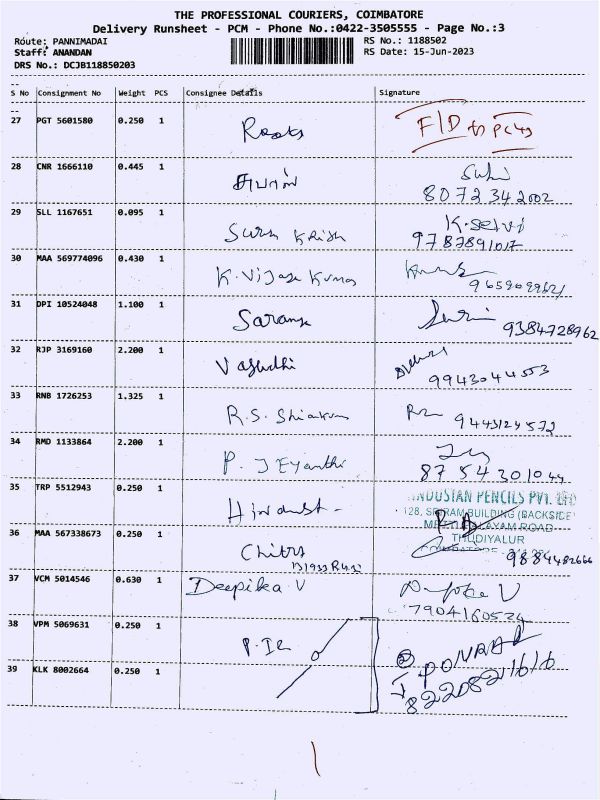 THE PROFESSIONAL COURIERS, COIMBATORE
Delivery Runsheet - PCM - Phone No.:0422-3505555 - Page No.:3
Route: PANNIMADAI RS No.: 1188502
Staff: ANANDAN RS Date: 15-Jun-2023
DRS No.: DCJB118850203
S No Consignment No Weight PCS Consignee Details Signature
27 PGT 5601580 0.250 1 Roots F/D to
28 CNR 1666110 0.445 1
8072342002
29 SLL 1167651 0.095 1 K.Selvi
9787891017
30 MAA 569774096 0.430 1 K. Vijaya Kumar
31 DPI 10524048 1.100 1 9384728962
32 RJP 3169160 2.200 1
9943044553
33 RNB 1726253 1.325 1 R.S.
34 RMD 1133864 2.200 1 P. JEyanthi
35 TRP 5512943 0.250 1 HINDUSTAN PENCILS PVT. LTD
128, SRIRAM BUILDING (BACKSIDE
36 MAA 567338673 0.250 1 Chitra THUDIYALUR
9884482666
37 VCM 5014546 0.630 1 Deepika V
7904160524
38 VPM 5069631 0.250 1
39 KLK 8002664 0.250 1 8220821616